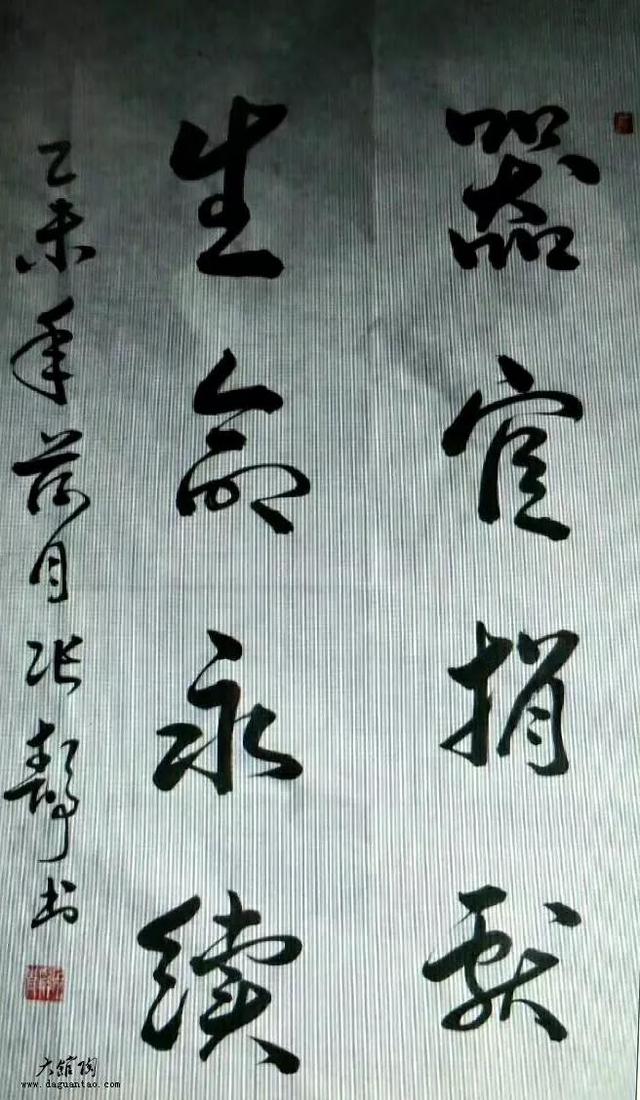 器官捐献
生命永续
乙未年荷月张静书
大馆陶
www.daguantao.com